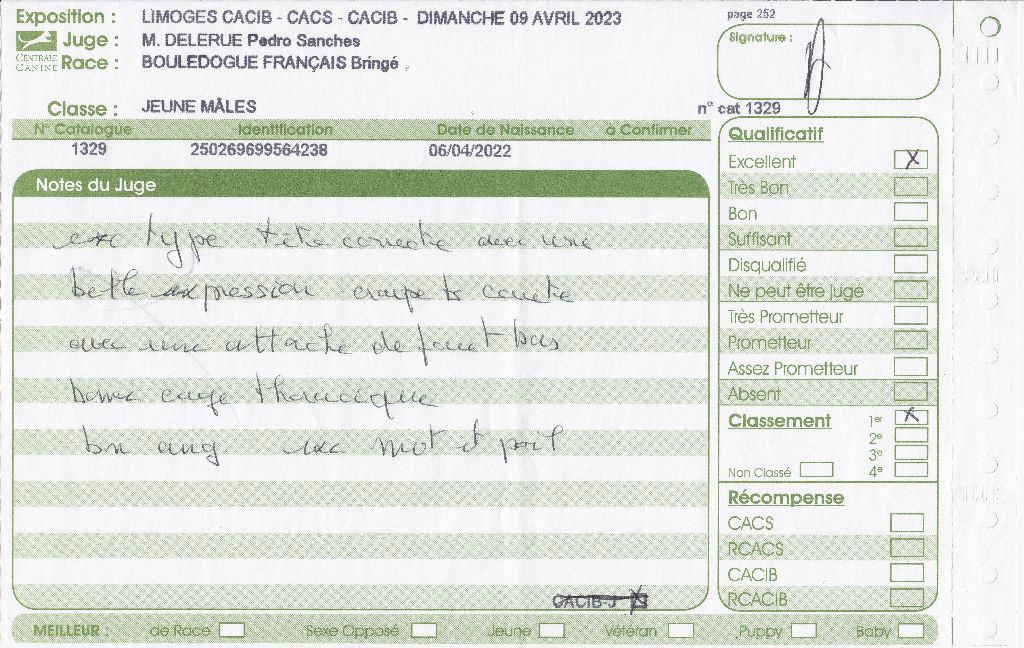 Exposition : LIMOGES CACIB - CACS - CACIB - DIMANCHE 09 AVRIL 2023
page 252
CENTRALE CANINE
Juge : M. DELERUE Pedro Sanches
Signature :
Race : BOULEDOGUE FRANÇAIS Bringé
Classe : JEUNE MÂLES
n° cat 1329
N° Catalogue Identification Date de Naissance à Confirmer
1329 250269699564238 06/04/2022
Notes du Juge
exc type tête correcte avec une
belle expression croupe correcte
avec une attache de fouet bas
bonne cage thoracique
bn ang exc mot et poil
CACIB-J X
Qualificatif
Excellent X
Très Bon
Bon
Suffisant
Disqualifié
Ne peut être jugé
Très Prometteur
Prometteur
Assez Prometteur
Absent
Classement 1er X
2e
3e
Non Classé 4e
Récompense
CACS
RCACS
CACIB
RCACIB
MEILLEUR : de Race Sexe Opposé Jeune Vétéran Puppy Baby